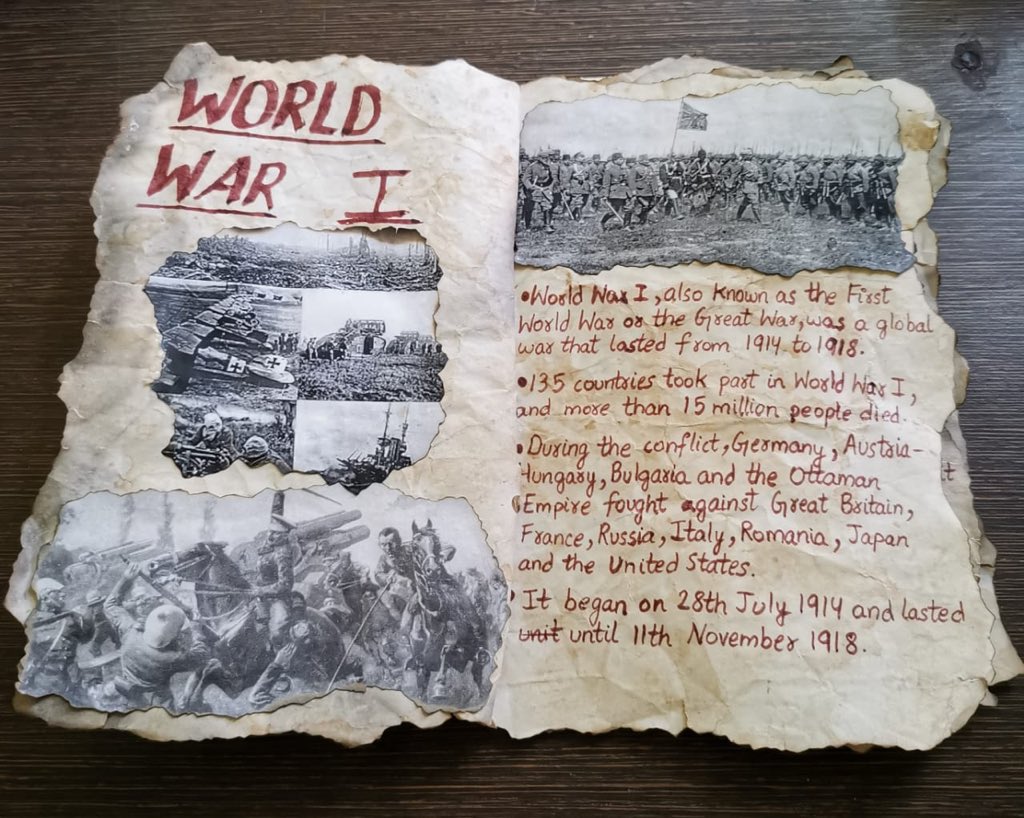 WORLD
WAR I
•World War I, also known as the First
World War or the Great War, was a global
war that lasted from 1914 to 1918.
•135 countries took part in World War I,
and more than 15 million people died.
•During the conflict, Germany, Austria-
Hungary, Bulgaria and the Ottaman
Empire fought against Great Britain,
France, Russia, Italy, Romania, Japan
and the United States.
•It began on 28th July 1914 and lasted
unit until 11th November 1918.
t